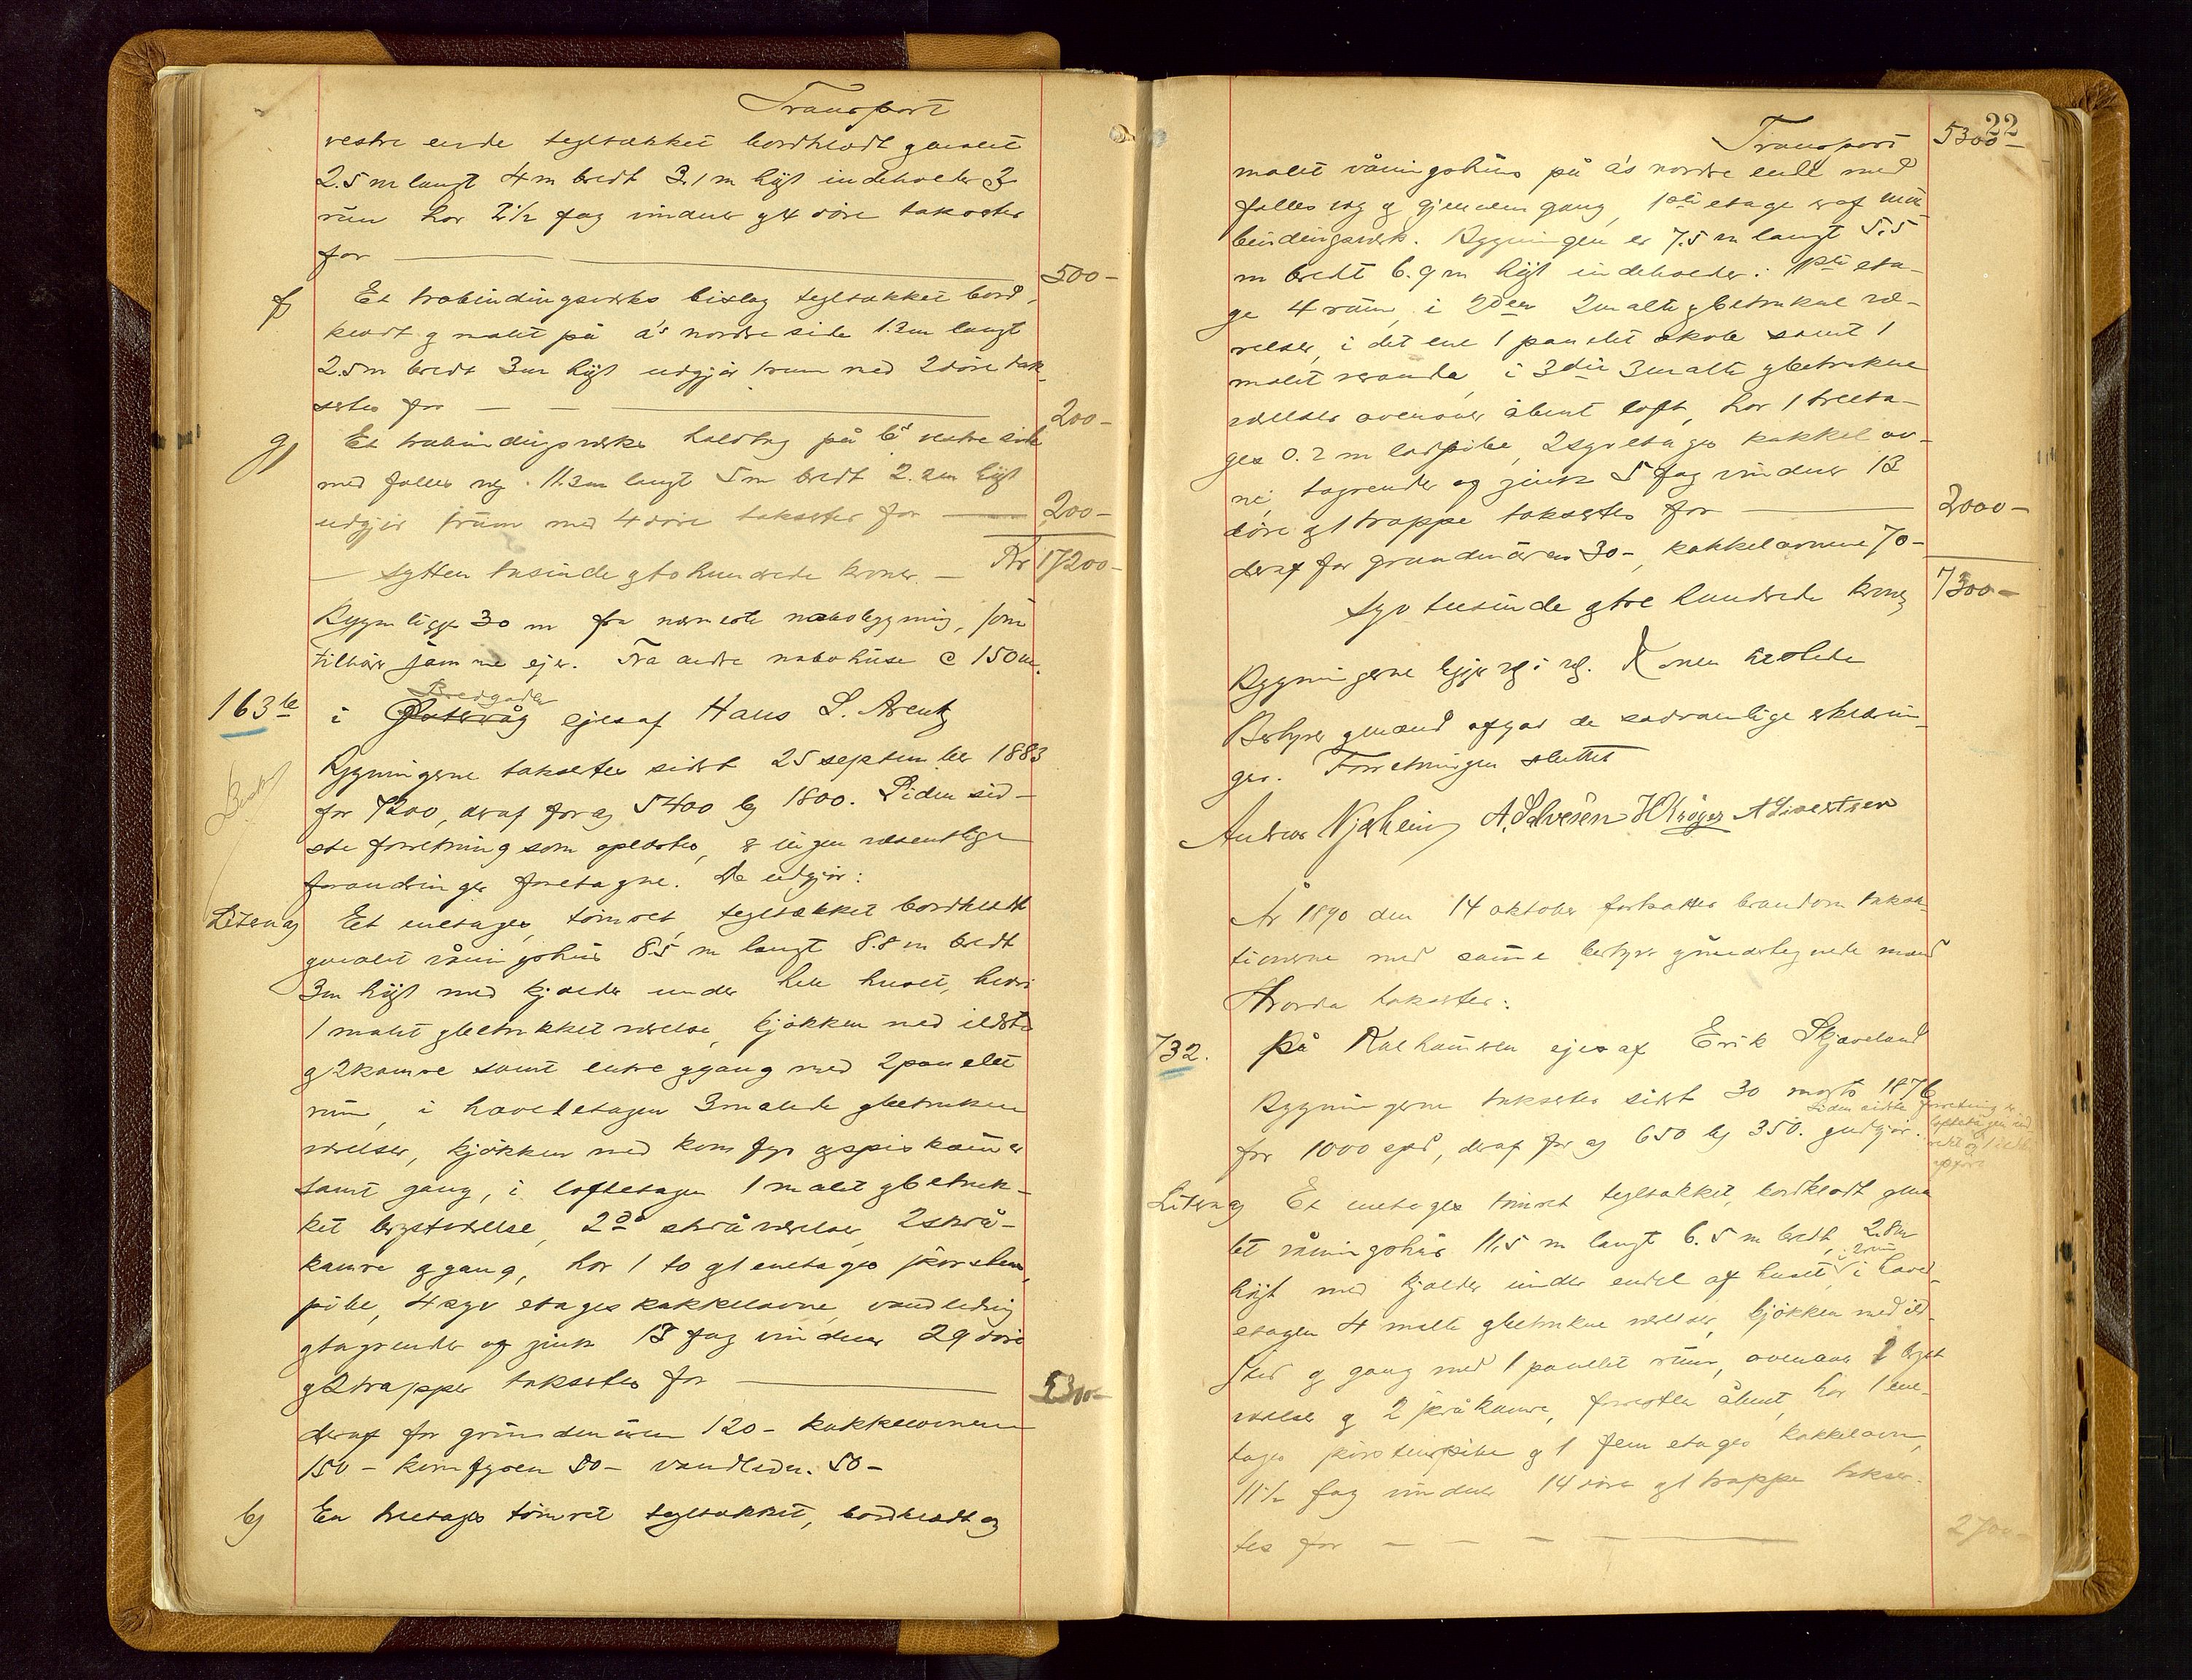 Transport
vestre ende tegltækket bordklædt g malet
2.5 m langt 4 m bredt 3.1 m høit indeholder 3
rum har 2½ fag vinduer g 4 døre takseres
for — 500 -
f Et træbindingsverks bislag tegltækket bord-
klædt g malet på a's nordre side 1.3 m langt
2.5 m bredt 3 m høit udgjør 1 rum med 2 døre tak-
seres for — — — 200 -
g) Et træbindingsværks halvtag på b's vestre side
med fælles væg. 11.3 m langt 5 m bredt 2.2 m høit
udgjør 1 rum med 4 døre takseres for — 200 -
— sytten tusinde g to hundrede kroner. — Kr 17200 -
Bygn. ligger 30 m fra nærmeste nabobygning, som
tilhører samme ejer. Fra andre nabohuse c 150 m.
Bredgade
163 te i Østervåg ejes af Hans L. Arentz
Bygningerne takseres sidst 25 september 1883
for 7200, deraf for a) 5400 b) 1800. Siden sid-
ste forretning som oplæstes, er ingen væsentlige
forandringer foretagne. De udgjør:
Litera a) Et enetages, tømret, tegltækket bordklædt
g malet våningshus 8.5 m langt 8.8 m bredt
3 m høit med kjælder under hele huset, hvori
1 malet g betrukket værelse, kjøkken med ildsted
g 2 kamre samt entre g gang med 2 panelet
rum, i hovedetagen 3 malede g betrukne
værelser, kjøkken med komfyr g spiskammer
samt gang, i loftetagen 1 malet g betruk-
ket kvistværelse, 2 do skråværelser, 2 skrå-
kamre g gang, har 1 to g 1 enetages skorstens
pibe, 4 syv etages kakkelovne, vandledning
g tagrender af zink 13 fag vinduer 29 døre
g 2 trapper takseres for — 5300 -
deraf for grundmuren 120 - kakkelovnene
150 - komfyren 50 - vandledn. 50 -
b) En treetages tømret tegltækket, bordklædt og
22
Transport 5300 -
malet våningshus på a's nordre ende med
fælles væg g gjennemgang, 1ste etage er af mur
bindingsverk. Bygningen er 7.5 m langt 5.5
m bredt 6.9 m høit indeholder: 1ste eta-
ge 4 rum, i 2den 2 malte g betrukne væ-
relser, i det ene 1 panelet skab samt 1
malet veranda, i 3die 3 malte g betrukne
værelser ovenover åbent loft, har 1 treeta-
ges 0.2 m lodpibe, 2 syvetages kakkelov-
ne, tagrender af zink 5 fag vinduer 13
døre g 1 trappe takseres for — 2000 -
deraf for grundmuren 30 -, kakkelovnene 70 -
Syv tusinde g tre hundrede kroner 7300 -
Bygningerne ligger væg i væg.
Bestyrer g mænd afgav de sædvanlige erklærin-
ger. Forretningen sluttet
A. Salvesen H Krøger A Sivertsen
År 1890 den 14 oktober fortsattes brandom taksa-
tionerne med samme bestyrer g undertegnede mænd
Hvorda takseres:
732. På Kalhammeren ejes af Erik Skjæveland
Bygningerne takseres sidst 30 marts 1876
for 1000 spd, deraf for a) 650 b) 350. g udgjør:
Siden sidste forretning er
Litera a) Et enetages tømret tegltækket, bordklædt g ma-
let våningshus 11.5 m langt 6.5 m bredt, 2.8 m
høit med kjælder under endel af huset, 2 rum i hoved-
etagen 4 malte g betrukne værelser, kjøkken med ild-
sted g gang med 1 panelet rum, ovenover 2 kvist
værelser g 2 skråkamre, forresten åbent, har 1 ene-
tages skorstenspibe g 1 fem etages kakkelovn,
11½ fag vinduer 14 døre g 1 trappe takser-
tes for — — — 2700 -